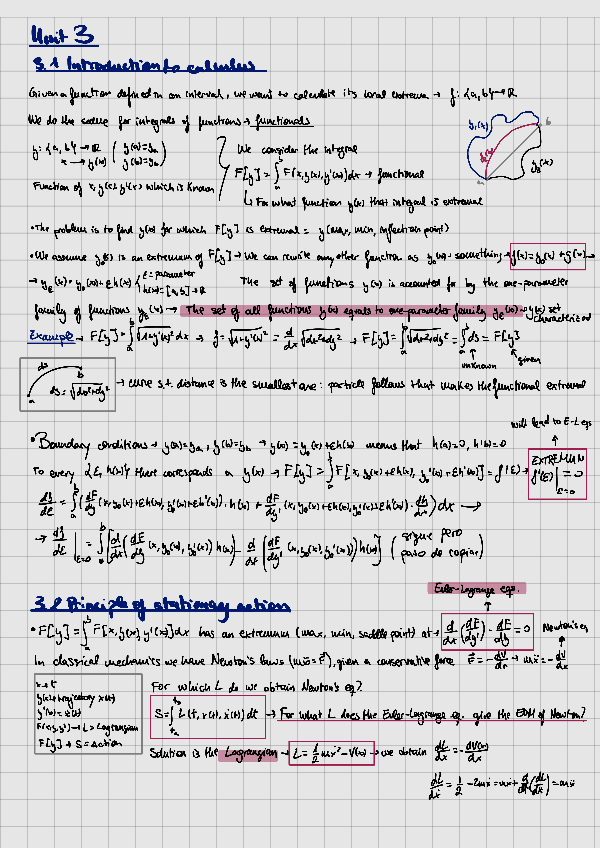 Unit 3
3.1 Introduction to calculus
Given a function defined in an interval, we want to calculate its local extrema → f: [a, b] → ℝ
We do the same for integrals of functions → functionals
y: [a, b] → ℝ ( y(a)=ya
x → y(x) ( y(b)=yb )
We consider the integral
F[y] = ∫ₐᵇ F(x, y(x), y'(x)) dx → functional
Function of x, y(x), y'(x) which is known
↳ For what function y(x) that integral is extremal
y₁(x)
y₀(x)
y₂(x)
a
b
• The problem is to find y(x) for which F[y] is extremal = y(max, min, inflection point)
• We assume y₀(x) is an extremum of F[y] → We can rewrite any other function as y₀(x) + something → y(x) = y₀(x) + g(x) →
→ yε(x) = y₀(x) + εh(x) { ε = parameter
h(x) = [a, b] → ℝ
The set of functions y(x) is accounted for by the one-parameter
family of functions yε(x) → The set of all functions y(x) equals to one-parameter family yε(x) → y(x) set
characterized
Example → F[y] = ∫ₐᵇ √(1+y'(x)²) dx → f = √(1+y'(x)²) = d/dx √(dx²+dy²) → F[y] = ∫ₐᵇ √(dx²+dy²) = ∫ₐᵇ ds = F[y]
unknown
given
ds
a
b
ds = √(dx²+dy²)
→ curve s.t. distance is the smallest one: particle follows that makes the functional extremal
will lead to E-L eqs
• Boundary conditions → y(a)=ya, y(b)=yb → y(x) = y₀(x) + εh(x) means that h(a)=0, h(b)=0
To every {ε, h(x)} there corresponds a y(x) → F[y] = ∫ₐᵇ F[x, y₀(x)+εh(x), y₀'(x)+εh'(x)] = f(ε) →
EXTREMUM
f'(ε)|ε=0 = 0
df/dε = ∫ₐᵇ (dF/dy (x, y₀(x)+εh(x), y₀'(x)+εh'(x)) · h(x) + dF/dy' (x, y₀(x)+εh(x), y₀'(x)+εh'(x)) · dh/dx) dx →
→ df/dε |ε=0 = ∫ₐᵇ [d/dx (dF/dy (x, y₀(x), y₀'(x)) h(x)) - d/dx (dF/dy' (x, y₀(x), y₀'(x))) h(x)] ( sigue pero
paso de copiar )
Euler-Lagrange eqs.
3.2 Principle of stationary action
• F[y] = ∫ₐᵇ F[x, y(x), y'(x)] dx has an extremum (max, min, saddle point) at → d/dx (dF/dy') - dF/dy = 0
Newton's eq
In classical mechanics we have Newton's laws (mẍ = F), given a conservative force F = -dV/dx → mẍ = -dV/dx
x → t
y(x) → trajectory x(t)
y'(x) → ẋ(t)
F(x,y,y') → L = Lagrangian
F[y] → S = Action
For which L do we obtain Newton's eq?
S = ∫ L(t, x(t), ẋ(t)) dt → For what L does the Euler-Lagrange eq. give the EOM of Newton?
Solution is the Lagrangian → L = 1/2 mẋ² - V(x) → we obtain dL/dx = -dV(x)/dx
dL/dẋ = 1/2 · 2mẋ = mẋ → d/dt (dL/dẋ) = mẍ